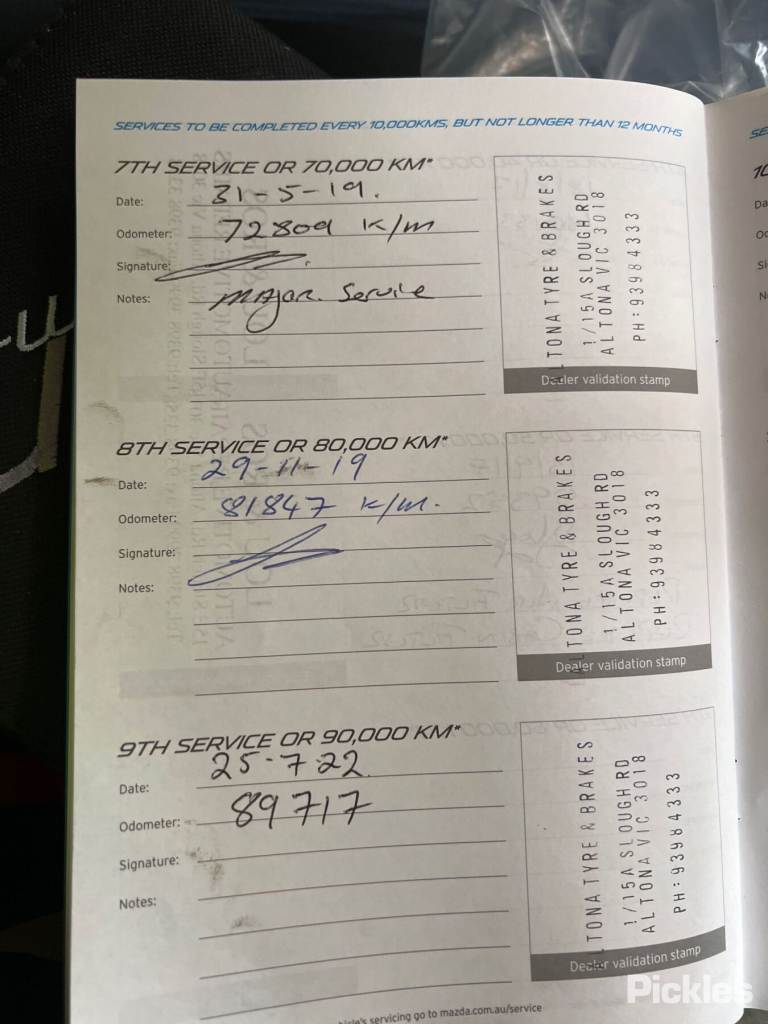 SERVICES TO BE COMPLETED EVERY 10,000KMS, BUT NOT LONGER THAN 12 MONTHS
7TH SERVICE OR 70,000 KM*
Date: 31-5-19.
Odometer: 72809 K/m
Signature:
Notes: Major. Service
ALTONA TYRE & BRAKES
1/15A SLOUGH RD
ALTONA VIC 3018
PH:93984333
Dealer validation stamp
8TH SERVICE OR 80,000 KM*
Date: 29-11-19
Odometer: 81847 K/m.
Signature:
Notes:
ALTONA TYRE & BRAKES
1/15A SLOUGH RD
ALTONA VIC 3018
PH:93984333
Dealer validation stamp
9TH SERVICE OR 90,000 KM*
Date: 25-7-22
Odometer: 89717
Signature:
Notes:
ALTONA TYRE & BRAKES
1/15A SLOUGH RD
ALTONA VIC 3018
PH:93984333
Dealer validation stamp
servicing go to mazda.com.au/service
Pickles